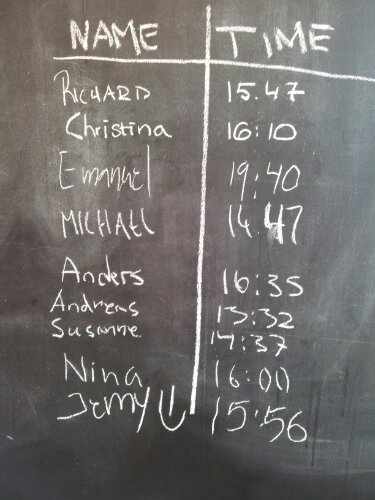 NAME TIME
RICHARD 15.47
Christina 16:10
Emanuel 19:40
MICHAEL 14.47
Anders 16:35
Andreas 13:32
Susanne 14:37
Nina 16:00
Jenny 15:56